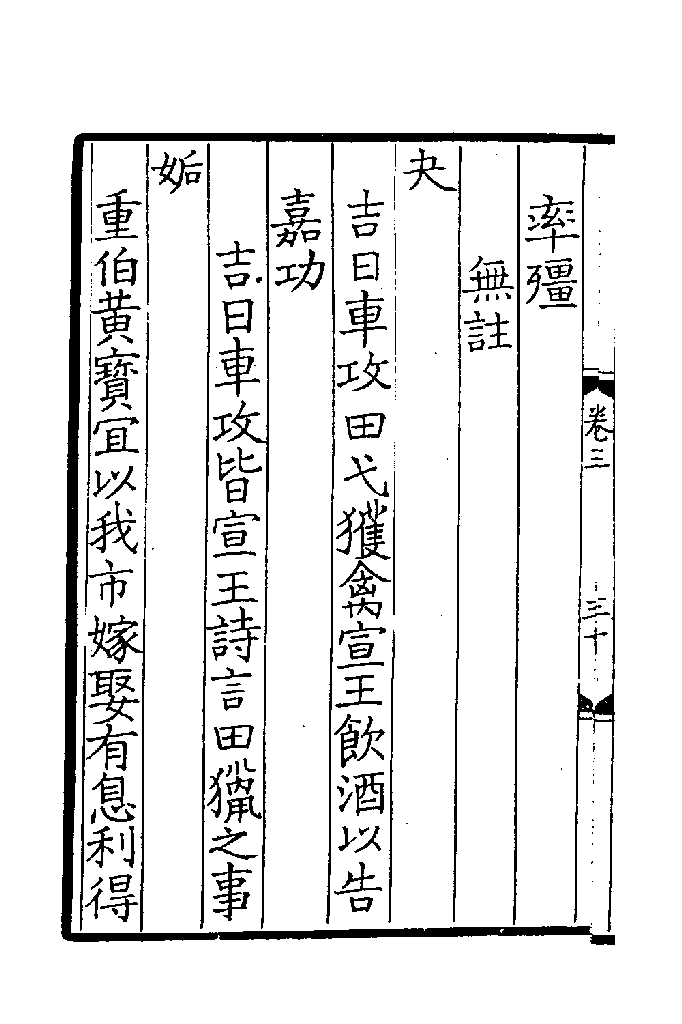 率殭
無註
夬
吉日車攻田弋獲禽宣王飲酒以告
嘉功
吉日車攻皆宣王詩言田獵之事
姤
重伯黃寶宜以我市嫁娶有息利得
卷三
三十